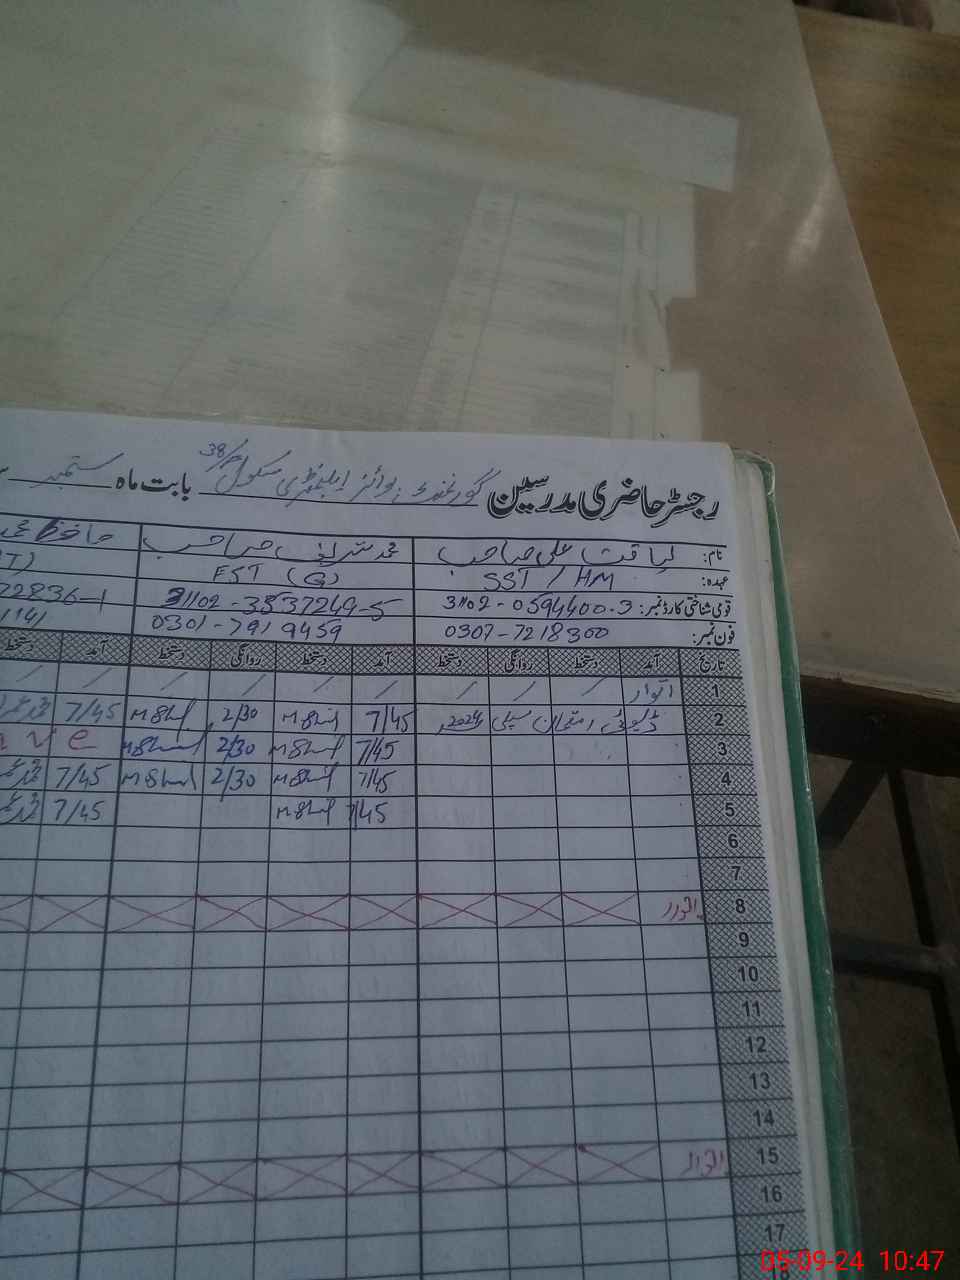 رجسٹر حاضری مدرسین گورنمنٹ بوائز ایلیمنٹری سکول 38/ بابت ماہ ستمبر
نام: لیاقت علی صاحب محمد شریف صاحب حافظ
عہدہ: SST / HM EST (G)
قومی شناختی کارڈ نمبر: 31102-0594400-3 31102-3537249-5 72836-1
فون نمبر: 0307-7218300 0301-7919459
تاریخ آمد دستخط روانگی دستخط آمد دستخط روانگی دستخط آمد دستخط
1 اتوار / / / / / / / / /
2 ڈیوٹی امتحان سپلی 2024 7/45 2/30 7/45
3 7/45 2/30
4 7/45 2/30 7/45
5 7/45 7/45
6
7
8 اتوار
9
10
11
12
13
14
15 اتوار
16
17
18
05-09-24 10:47